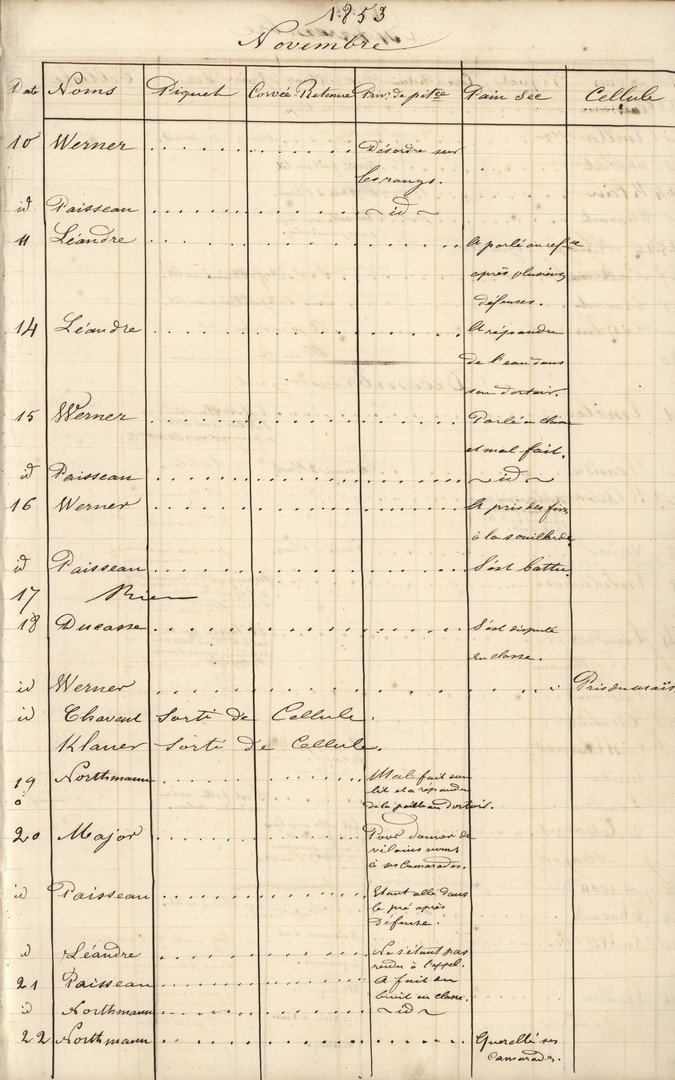 1853
Novembre
Date Noms Piquet Corvée-Retenue Priv. de pitce Pain Sec Cellule
10 Werner Désordre sur
les rangs.
id Paisseau id
11 Léandre A parlé au refre
après plusieurs
défenses.
14 Léandre A répandu
de l'eau dans
son dortoir.
15 Werner Parlé en classe
et mal fait.
id Paisseau id
16 Werner A pris des
à la souillarde.
id Paisseau S'est battu.
17 Rien
18 Ducasse S'est disputé
en classe.
id Werner Pris du maïs
id Chavent Sorti de Cellule.
Klauer Sorti de Cellule.
19 Northmann Mal fait son
lit et a répandu
de la paille au dortoir.
20 Major Pour donner de
vilains noms
à ses camarades.
id Paisseau Etant allé dans
le pré après
défense.
id Léandre Ne s'étant pas
rendu à l'appel.
21 Paisseau A fait du
bruit en classe.
id Northmann id
22 Northmann Querellé ses
camarades.